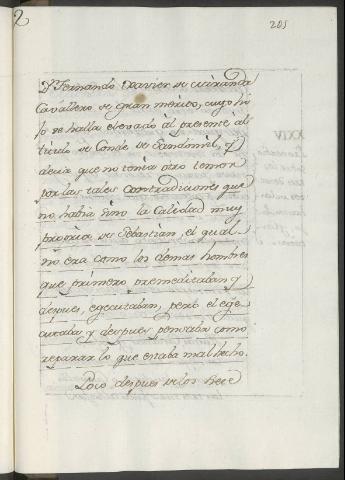 2
205
Dn Fernando Xavier de Miranda
Cavallero de gran merito, cuyo hi
jo se halla elevado al presente al
titulo de Conde de Sandomil, y
decia que no tenia otro temor
por las tales Contradiciones que
no habia sino la Calidad muy
propria de Sebastian, el qual
no era como los demas hombres
que primero premeditaban y
despues, egecutaban, pero el ege
cutaba y despues pensaba como
reparar lo que estaba mal hecho.
Poco despues de los